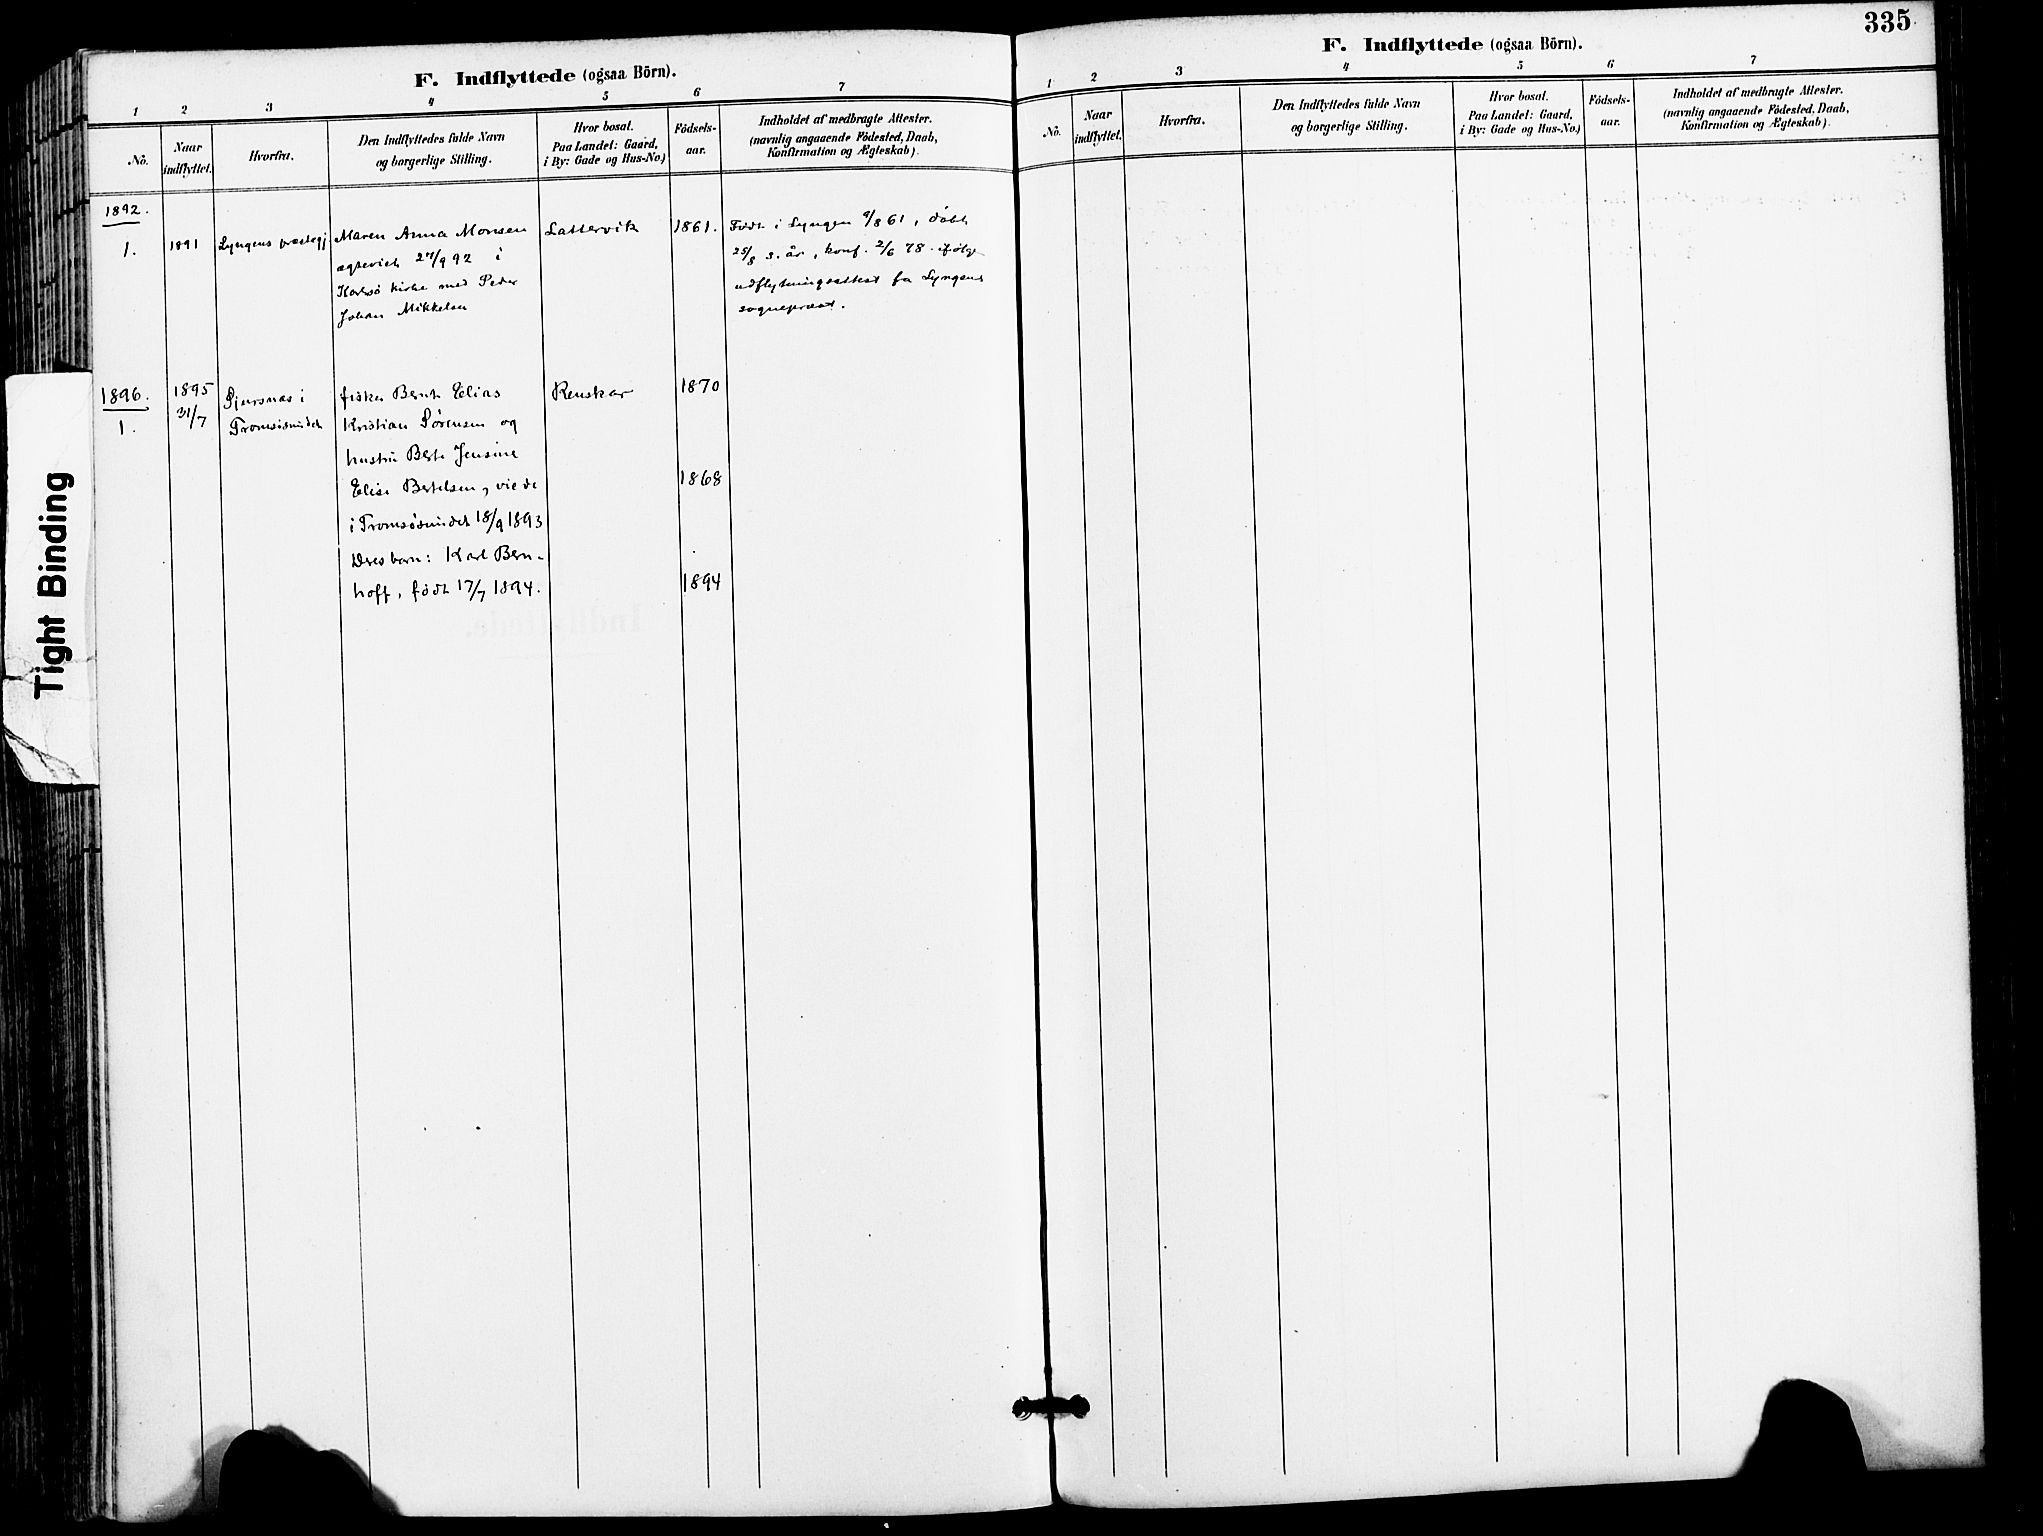 335
F. Indflyttede (ogsaa Börn).
1 2 3 4 5 6 7
No.
Naar indflyttet.
Hvorfra.
Den Indflyttedes fulde Navn
og borgerlige Stilling.
Hvor bosat.
Paa Landet: Gaard,
i By: Gade og Hus-No.)
Födsels-
aar.
Indholdet af medbragte Attester.
(navnlig angaaende Födested, Daab,
Konfirmation og Ægteskab).
1892.
1. 1891 Lyngens præstegj Maren Anna Monsen Lattervik 1861. Født i Lyngen 9/8 61, døbt
ægteviet 27/9 92 i 25/8 s. år, konf. 2/6 78 ifølge
Karlsö kirke med Peder udflytningsattest fra Lyngens
Johan Mikkelsen sognepræst.
1896. 1895 Sjursnæs i fisker Bernt Elias Renskar 1870
1. 31/7 Tromsösundet Kristian Sørensen og
hustru Berte Jensine
Elise Bertelsen, viede 1868
i Tromsösundet 18/9 1893
Deres barn: Karl Bern-
hoff, født 17/7 1894. 1894
Tight Binding
F. Indflyttede (ogsaa Börn).
1 2 3 4 5 6 7
No.
Naar indflyttet.
Hvorfra.
Den Indflyttedes fulde Navn
og borgerlige Stilling.
Hvor bosat.
Paa Landet: Gaard,
i By: Gade og Hus-No.)
Födsels-
aar.
Indholdet af medbragte Attester.
(navnlig angaaende Födested, Daab,
Konfirmation og Ægteskab).